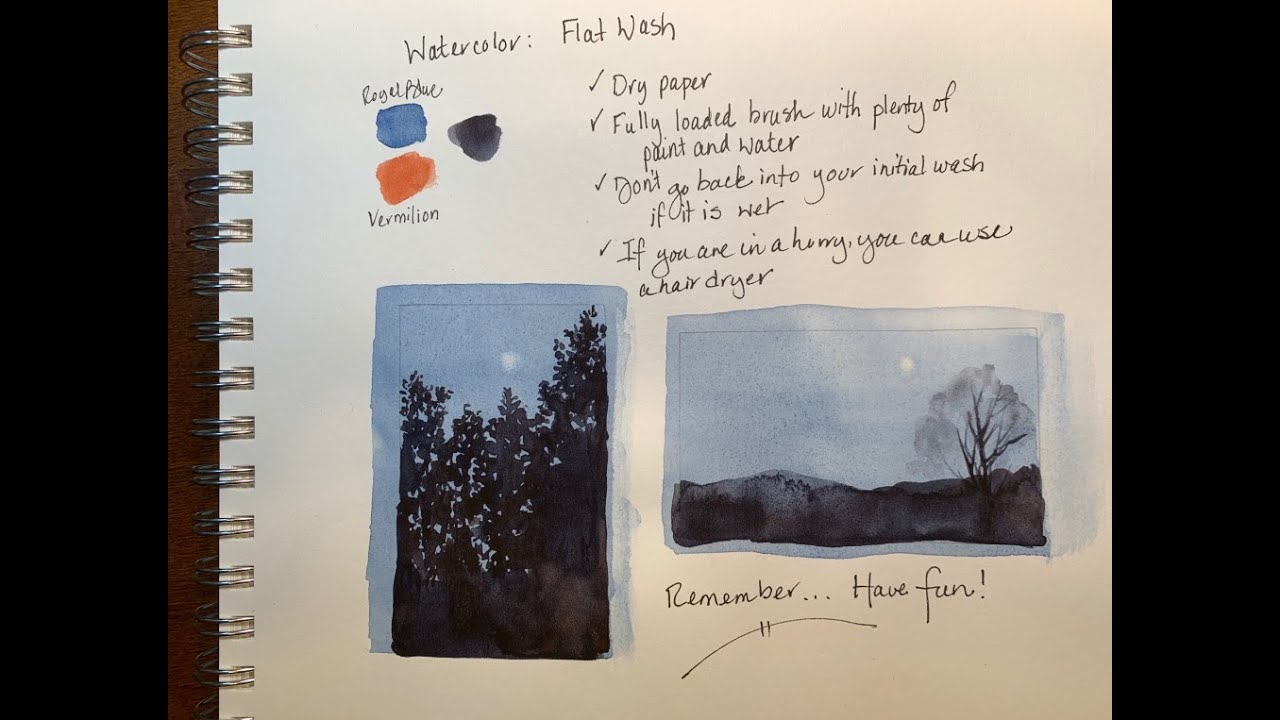 Watercolor: Flat Wash
Royal Blue
Vermilion
✓ Dry paper
✓ Fully loaded brush with plenty of
paint and water
✓ Don't go back into your initial wash
if it is wet
✓ If you are in a hurry, you can use
a hair dryer
Remember... Have fun!